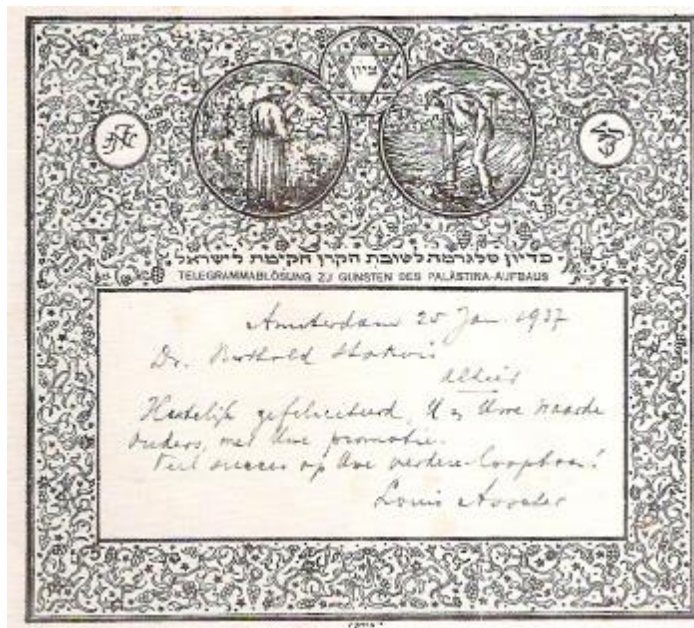 ציון
פדיון טלגרמה לטובת הקרן הקימת לישראל
TELEGRAMMABLÖSUNG ZU GUNSTEN DES PALÄSTINA-AUFBAUS
Amsterdam 25 Jan. 1937
Dr. Berthold Stokvis
Alhier
Hartelijk gefeliciteerd, U en Uwe waarde
ouders, met Uwe promotie.
Veel succes op Uwe verdere loopbaan!
Louis